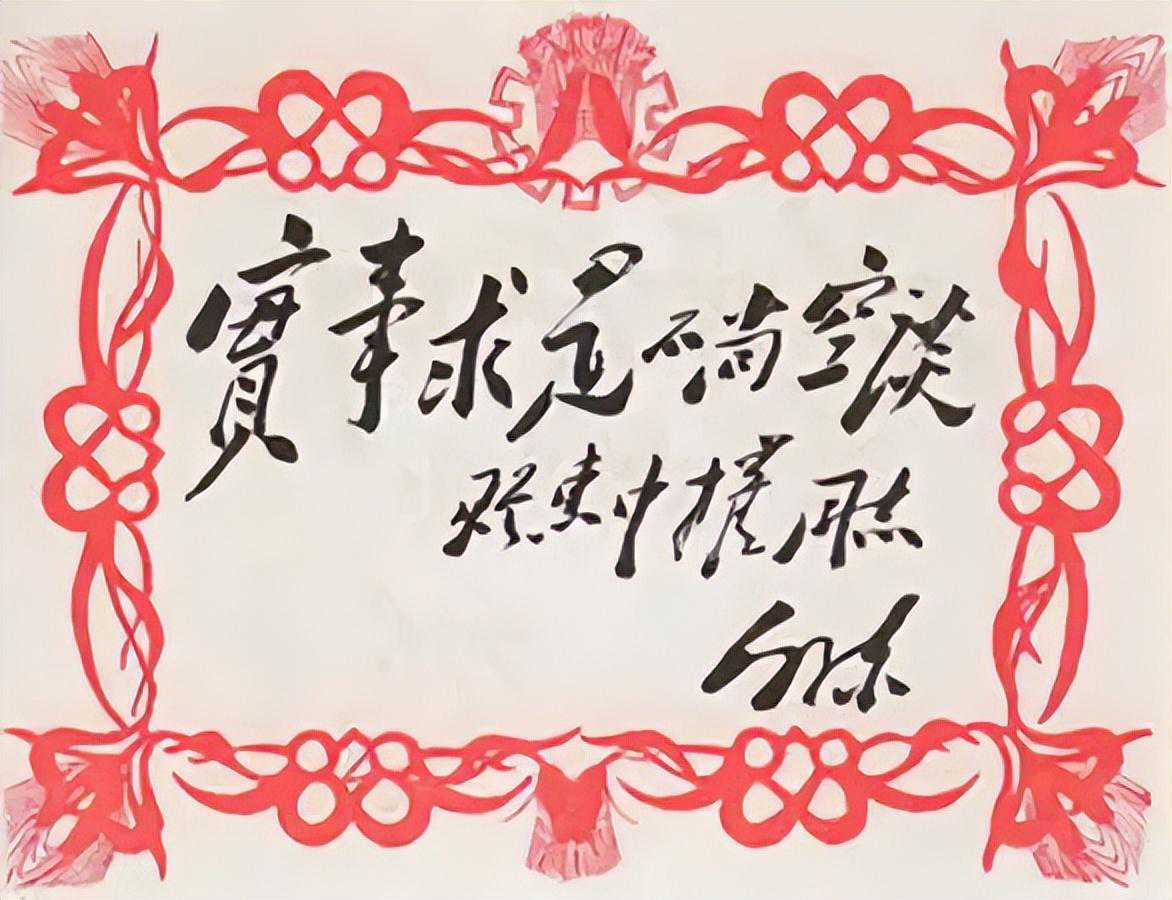 實事求是不尚空談
贈惠中權同志
毛澤東